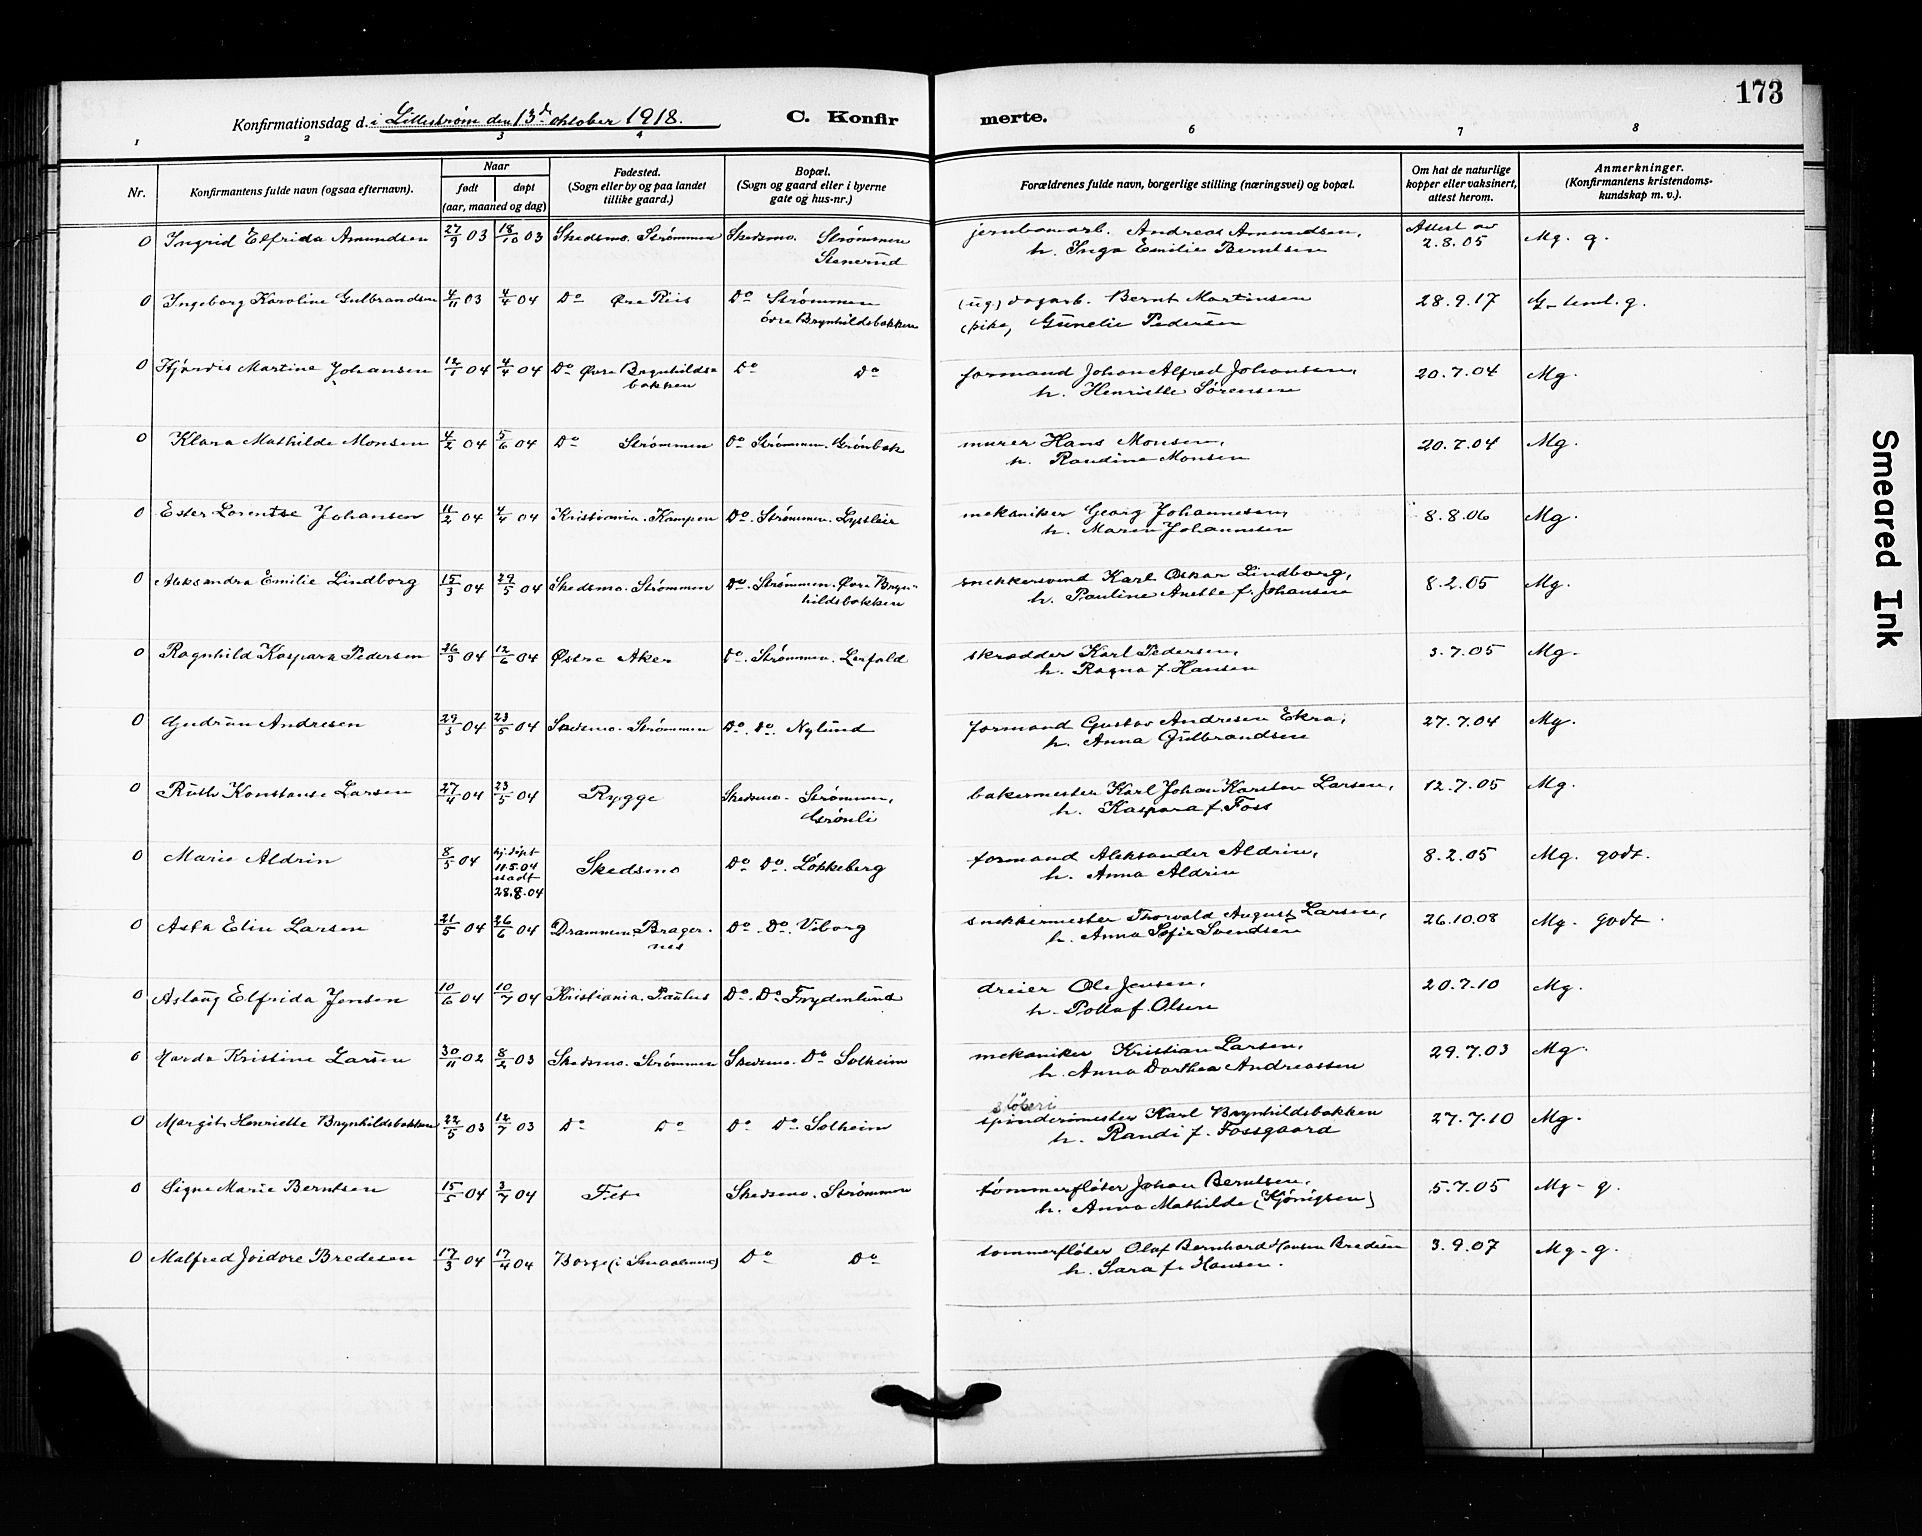 173
Konfirmationsdag d. i Lillestrøm den 13de oktober 1918.
C. Konfirmerte.
1 2 3 4 6 7 8
Nr.
Konfirmantens fulde navn (ogsaa efternavn).
Naar
født døpt
(aar, maaned og dag)
Fødested.
(Sogn eller by og paa landet
tillike gaard.)
Bopæl.
(Sogn og gaard eller i byerne
gate og hus-nr.)
Forældrenes fulde navn, borgerlige stilling (næringsvei) og bopæl.
Om hat de naturlige
kopper eller vaksinert,
attest herom.
Anmerkninger.
(Konfirmantens kristendoms-
kundskap m. v.).
0 Ingrid Elfrida Amundsen 27/9 03 18/10 03 Skedsmo. Strømmen Skedsmo. Strømmen
Stenerud
jernbanearb. Andreas Amundsen,
h. Inga Emilie Berntsen
Attest av
2.8.05 Mg. g.
0 Ingeborg Karoline Gulbrandsen 4/11 03 4/4 04 Do Øvre Riis Do Strømmen
övre Brynhildsbakken
(ug) dagarb. Bernt Martinsen
(pike) Gunelie Pedersen
28.9.17 G. g.
0 Hjørdis Martine Johansen 12/1 04 4/4 04 Do Øvre Brynhilds-
bakken Do Do
formand Johan Alfred Johansen,
h. Henriette Sørensen
20.7.04 Mg.
0 Klara Mathilde Monsen 4/2 04 5/6 04 Do Strømmen Do Strømmen. Grönbak
murer Hans Monsen,
h. Randine Monsen
20.7.04 Mg.
0 Ester Lorentse Johansen 11/2 04 4/4 04 Kristiania. Kampen Do. Strømmen.
mekaniker Georg Johannesen,
h. Maren Johannesen
8.8.06 Mg.
0 Aleksandra Emilie Lindborg 15/3 04 29/5 04 Skedsmo. Strømmen Do. Strømmen. Øvre Bryn-
hildsbakken
snekkersvend Karl Oskar Lindborg,
h. Pauline Anette f. Johansen
8.2.05 Mg.
0 Ragnhild Kaspara Pedersen 26/3 04 12/6 04 Østre Aker Do. Strømmen. Lerfald
skrædder Karl Pedersen,
h. Ragna f. Hansen
3.7.05 Mg.
0 Gudrun Andresen 29/3 04 23/5 04 Skedsmo. Strømmen Do. Do. Nylund
formand Gustav Andresen Ekra,
h. Anna Gulbrandsen
27.7.04 Mg.
0 Ruth Konstanse Larsen 27/4 04 23/5 04 Rygge Skedsmo. Strømmen,
Grönli
bakermester Karl Johan Karsten Larsen,
h. Kaspara f. Foss
12.7.05 Mg.
0 Marie Aldrin 8/5 04 hj. döpt
11.5.04
stadf.
28.8.04
Skedsmo Do Do. Løkkeberg
formand Aleksander Aldrin,
h. Anna Aldrin
8.2.05 Mg. godt.
0 Asta Elin Larsen 21/5 04 26/6 04 Drammen. Brager-
nes Do. Do. Viborg
snekkermester Thorvald August Larsen,
h. Anna Sofie Svendsen
26.10.08 Mg. godt.
0 Aslaug Elfrida Jensen 10/6 04 10/7 04 Kristiania. Paulus Do. Do. Frydenlund
dreier Ole Jensen,
h. f. Olsen
20.7.10 Mg.
0 Harda Kristine Larsen 30/11 02 8/2 03 Skedsmo. Strømmen Skedsmo. Do Solheim
mekaniker Kristian Larsen,
h. Anna Dorthea Andreassen
29.7.03 Mg.
0 Margit Henriette Brynhildsbakken 22/5 03 12/7 03 Do Do Do Do. Solheim
stöberi
spinderimester Karl Brynhildsbakken
h. Randi f. Fossgaard
27.7.10 Mg.
0 Signe Marie Berntsen 15/5 04 3/7 04 Fet Skedsmo. Strømmen
tömmerflöter Johan Berntsen,
h. Anna Mathilde (Kjönigsen)
5.7.05 Mg. g.
0 Malfred Joidore Bredesen 17/3 04 17/4 04 Borge (i Smaalenene) Do Do
tömmerflöter Olaf Bernhard Hansen Bredesen
h. Sara f. Hansen.
3.9.07 Mg. g.
Smeared Ink